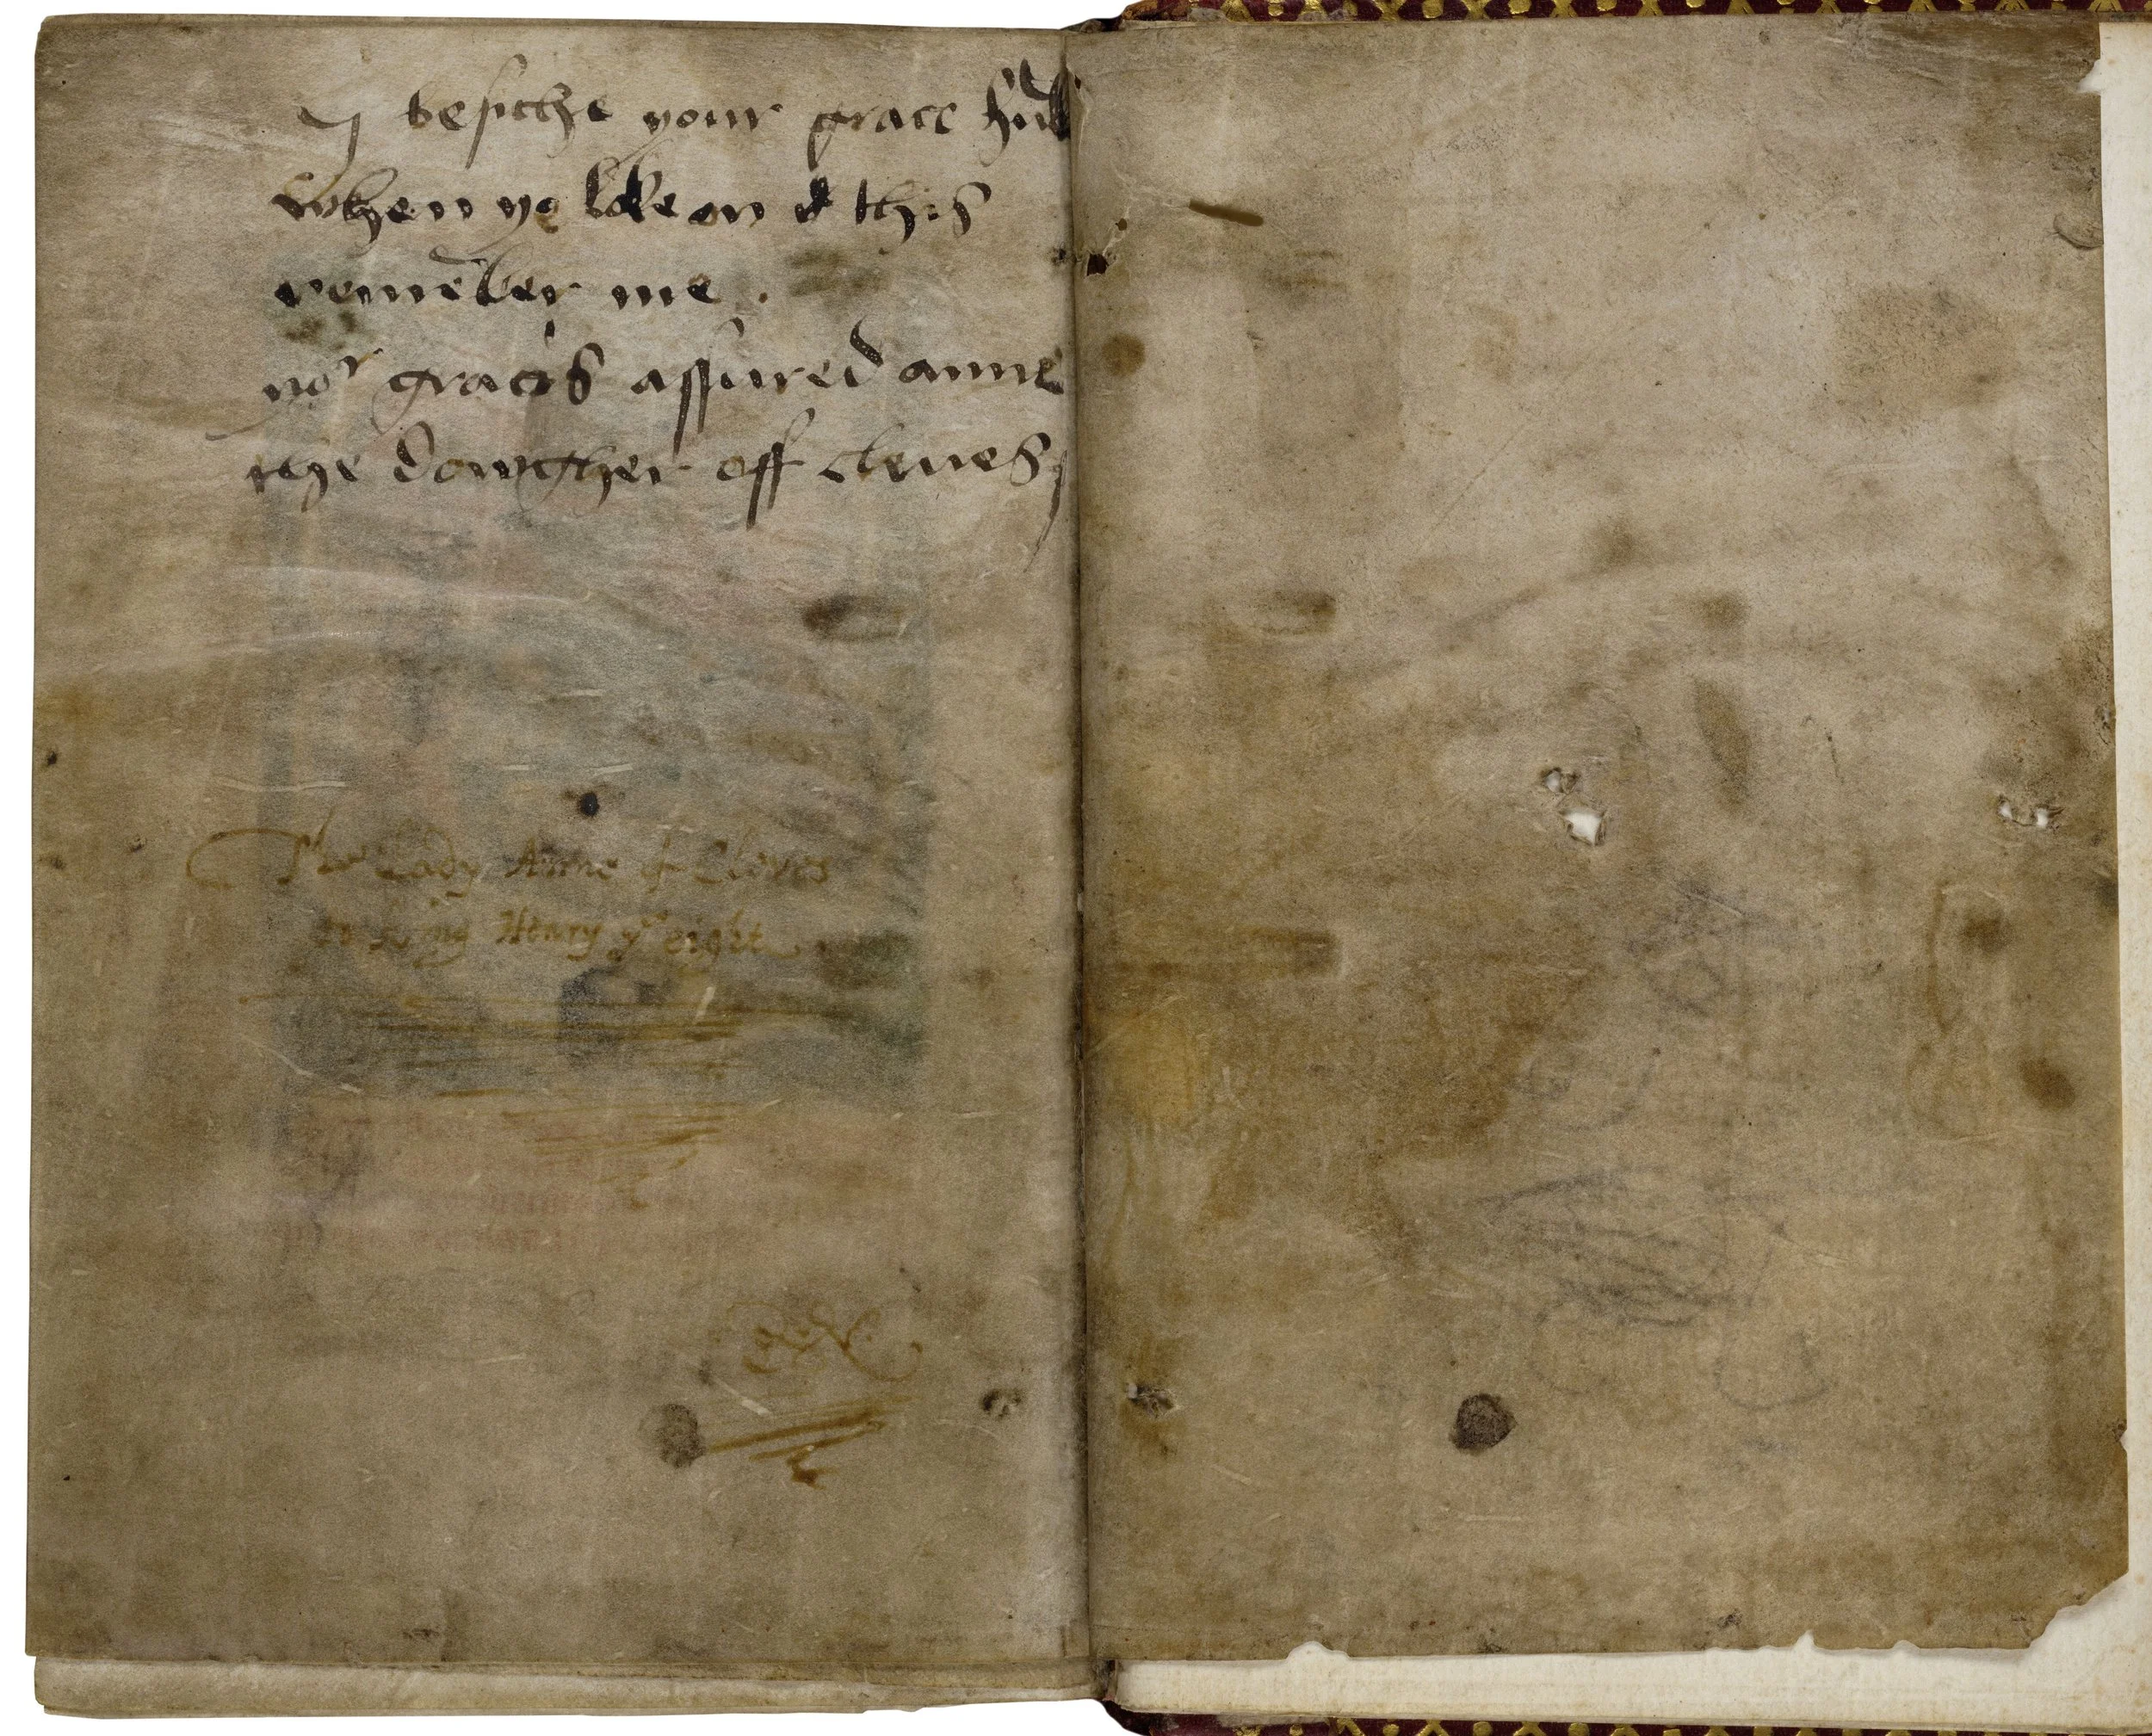 I besiche your grace hu̅bly
when ye loke on this
reme̅ber me .
yor gracis assured anne
the dowgher off cleves
The Lady Anne of Cleves
to King Henry ye eight